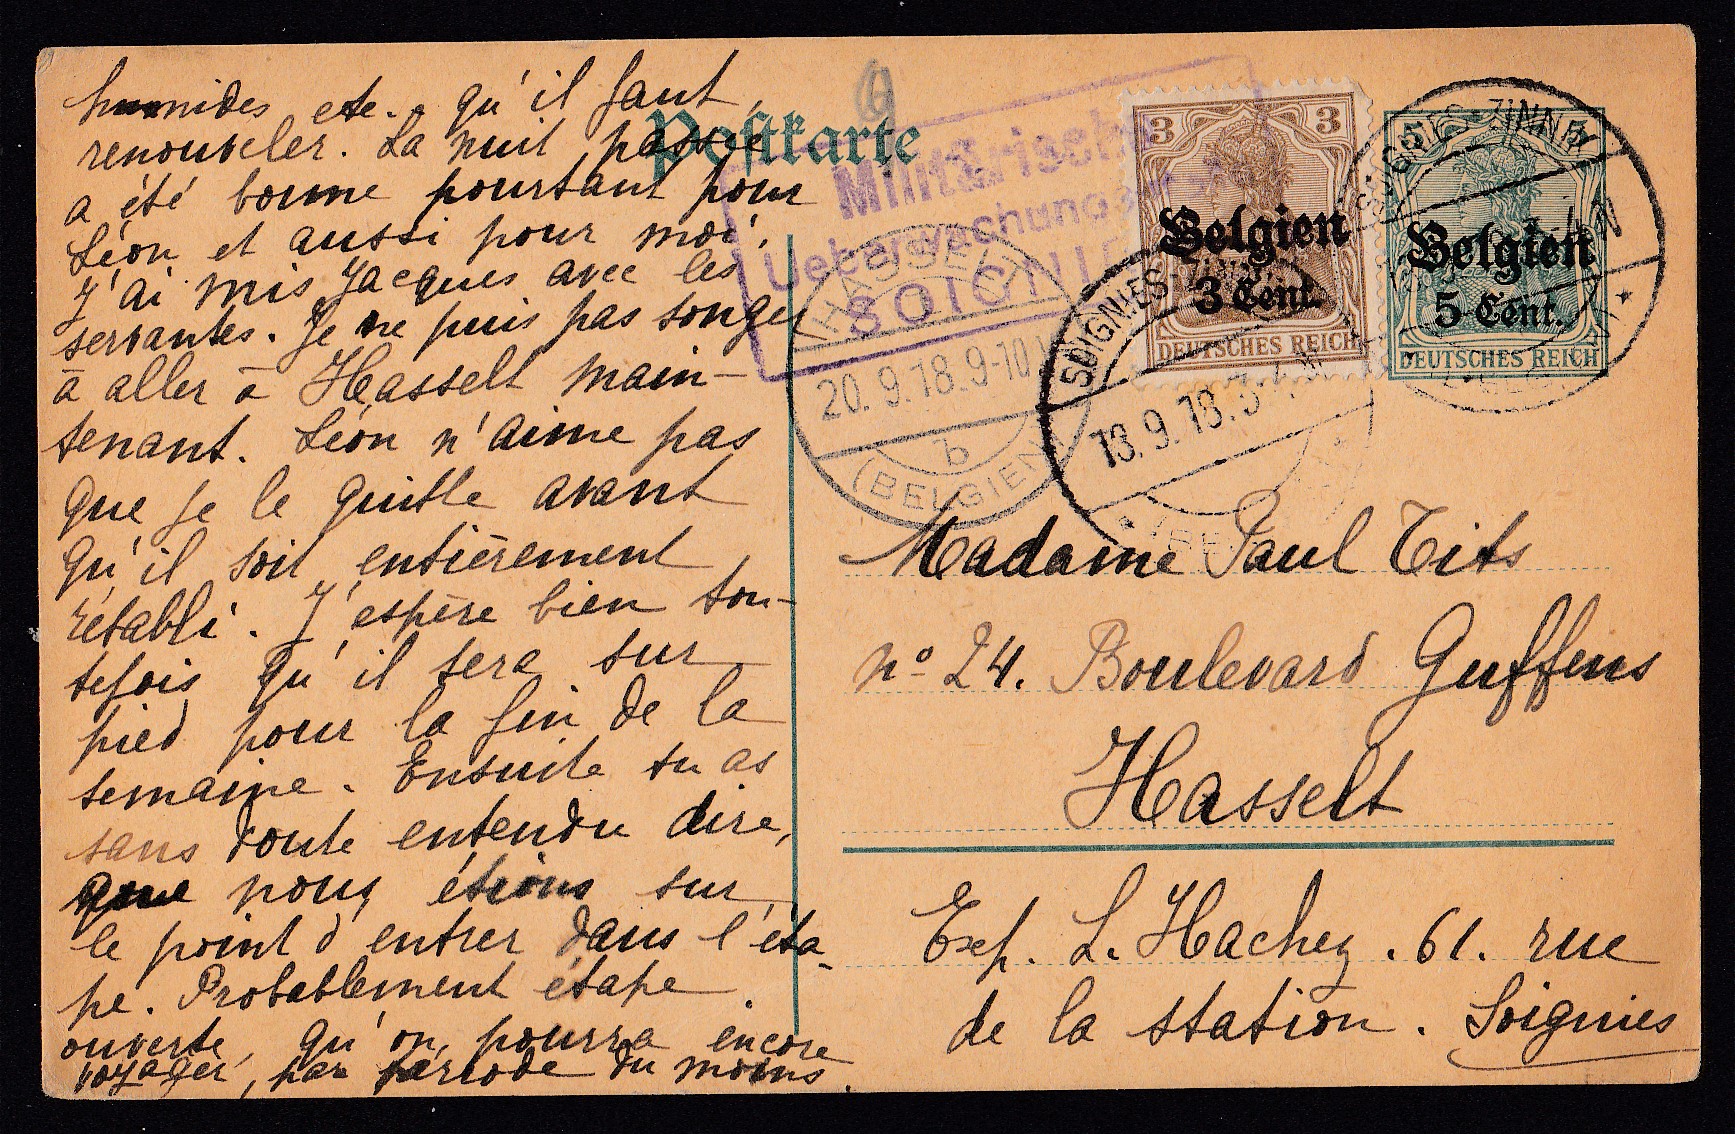 humides etc. qu'il faut
renouveler. La nuit passée
a été bonne pourtant pour
Léon et aussi pour moi.
J'ai mis Jacques avec les
servantes. Je ne puis pas songer
à aller à Hasselt main-
tenant. Léon n'aime pas
que je le quitte avant
qu'il soit entièrement
rétabli. J'espère bien tou-
tefois qu'il sera sur
pied pour la fin de la
semaine. Ensuite tu as
sans doute entendu dire,
que nous étions sur
le point d'entrer dans l'éta-
pe. Probablement étape
ouverte, qu'on pourra encore
voyager, par période du moins.
Postkarte
Militärische
Ueberwachungs
SOIGNIE
HASSELT
20.9.18.9-10V
b
(BELGIEN)
3 3
Belgien
3 Cent.
DEUTSCHES REICH
5 5
Belgien
5 Cent.
DEUTSCHES REICH
SOIGNIES
13.9.18.
Madame Paul Tits
no 24. Boulevard Guffens
Hasselt
Exp. L. Hachez. 61. rue
de la station. Soignies